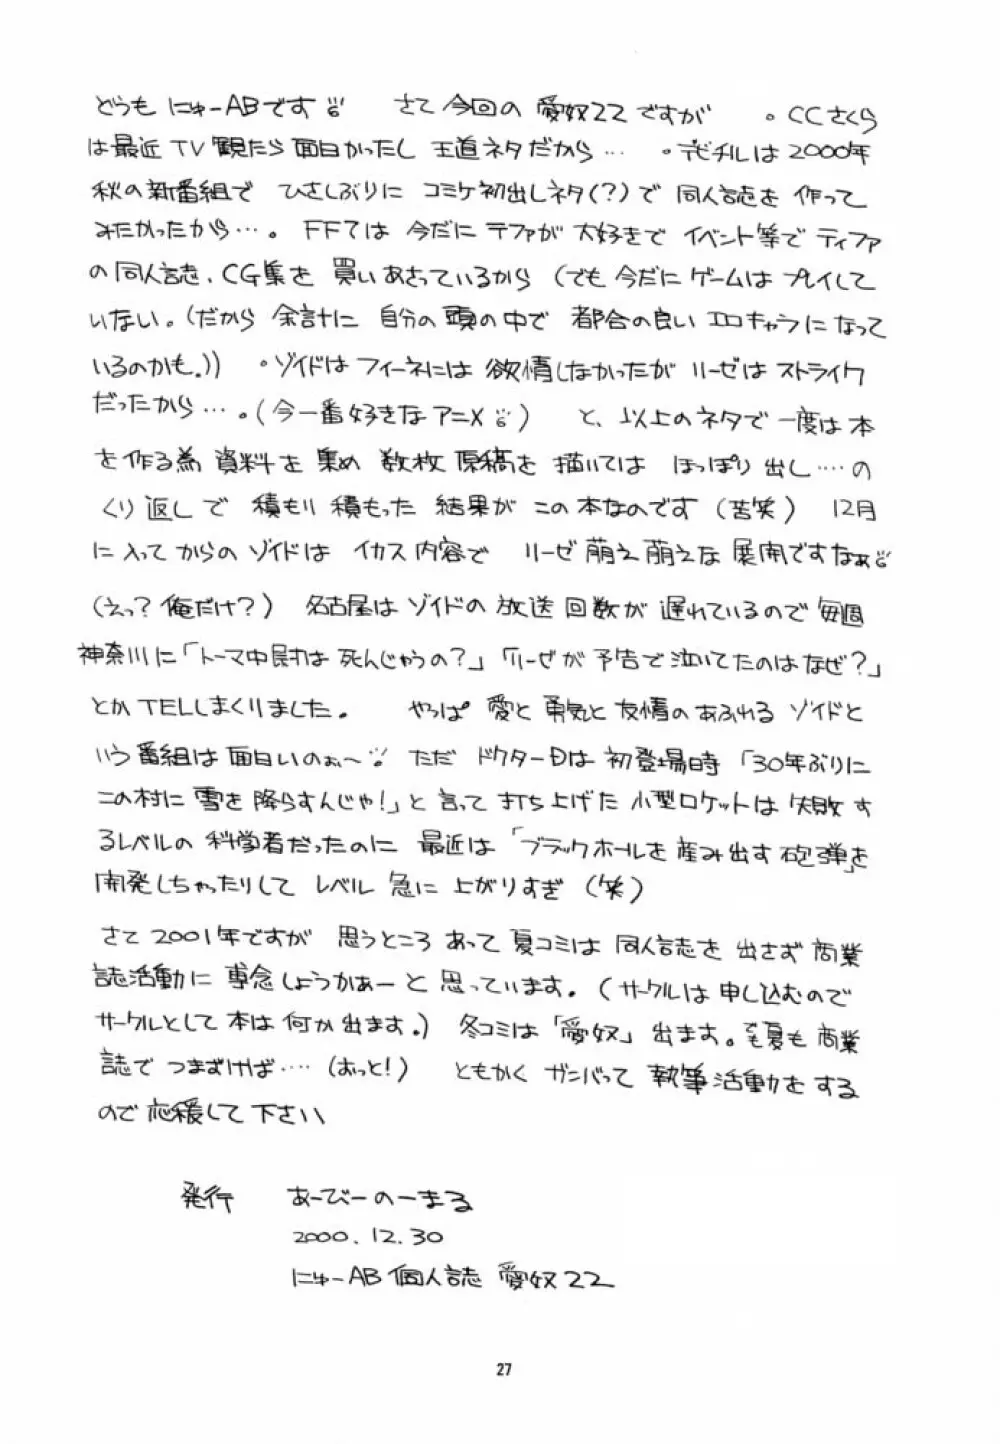 どうも にゅーABです さて今回の 愛奴22ですが 。CCさくら
は最近 TV観たら面白かったし 王道ネタだから… 。デビチルは2000年
秋の新番組で ひさしぶりに コミケ初出しネタ(?)で 同人誌を 作って
みたかったから…。 FF7は 今だに ティファが 大好きで イベント等で ティファ
の同人誌、CG集を 買いあさっているから (でも今だにゲームは プレイして
いない。(だから 余計に 自分の頭の中で 都合の良い エロキャラになって
いるのかも。)) 。ゾイドは フィーネには 欲情しなかったが リーゼは ストライク
だったから…。(今一番好きなアニメ) と、以上のネタで 一度は本
を作る為 資料を 集め 数枚 原稿を 描いては ほっぽり出し….の
くり返しで 積もり積もった 結果が この本なのです (苦笑) 12月
に入ってからの ゾイドは イカス内容で リーゼ萌え萌えな 展開ですなぁ
(えっ?俺だけ?) 名古屋は ゾイドの 放送回数が 遅れているので 毎週
神奈川に「トーマ中尉は 死んじゃうの?」「リーゼが 予告で泣いてたのはなぜ?」
とかTELしまくりました。 やっぱ 愛と勇気と友情のあふれる ゾイドと
いう番組は面白いのぉ〜 ただ ドクターDは 初登場時「30年ぶりに
この村に 雪を降らすんじゃ!」と言って 打ち上げた 小型ロケットは 失敗す
るレベルの 科学者だったのに 最近は「ブラックホールを 産み出す砲弾」を
開発しちゃったりして レベル 急に 上がりすぎ (笑)
さて2001年ですが 思うところ あって 夏コミは 同人誌を 出さず 商業
誌活動に 専念しようかぁーと 思っています。(サークルは 申し込むので
サークルとして 本は 何か出ます。) 冬コミは「愛奴」出ます。でも夏も商業
誌で つまずけば…. (おっと!) ともかく ガンバって 執筆活動をする
ので応援して下さい
発行 あーびーのーまる
2000.12.30
にゅーAB個人誌 愛奴22
27